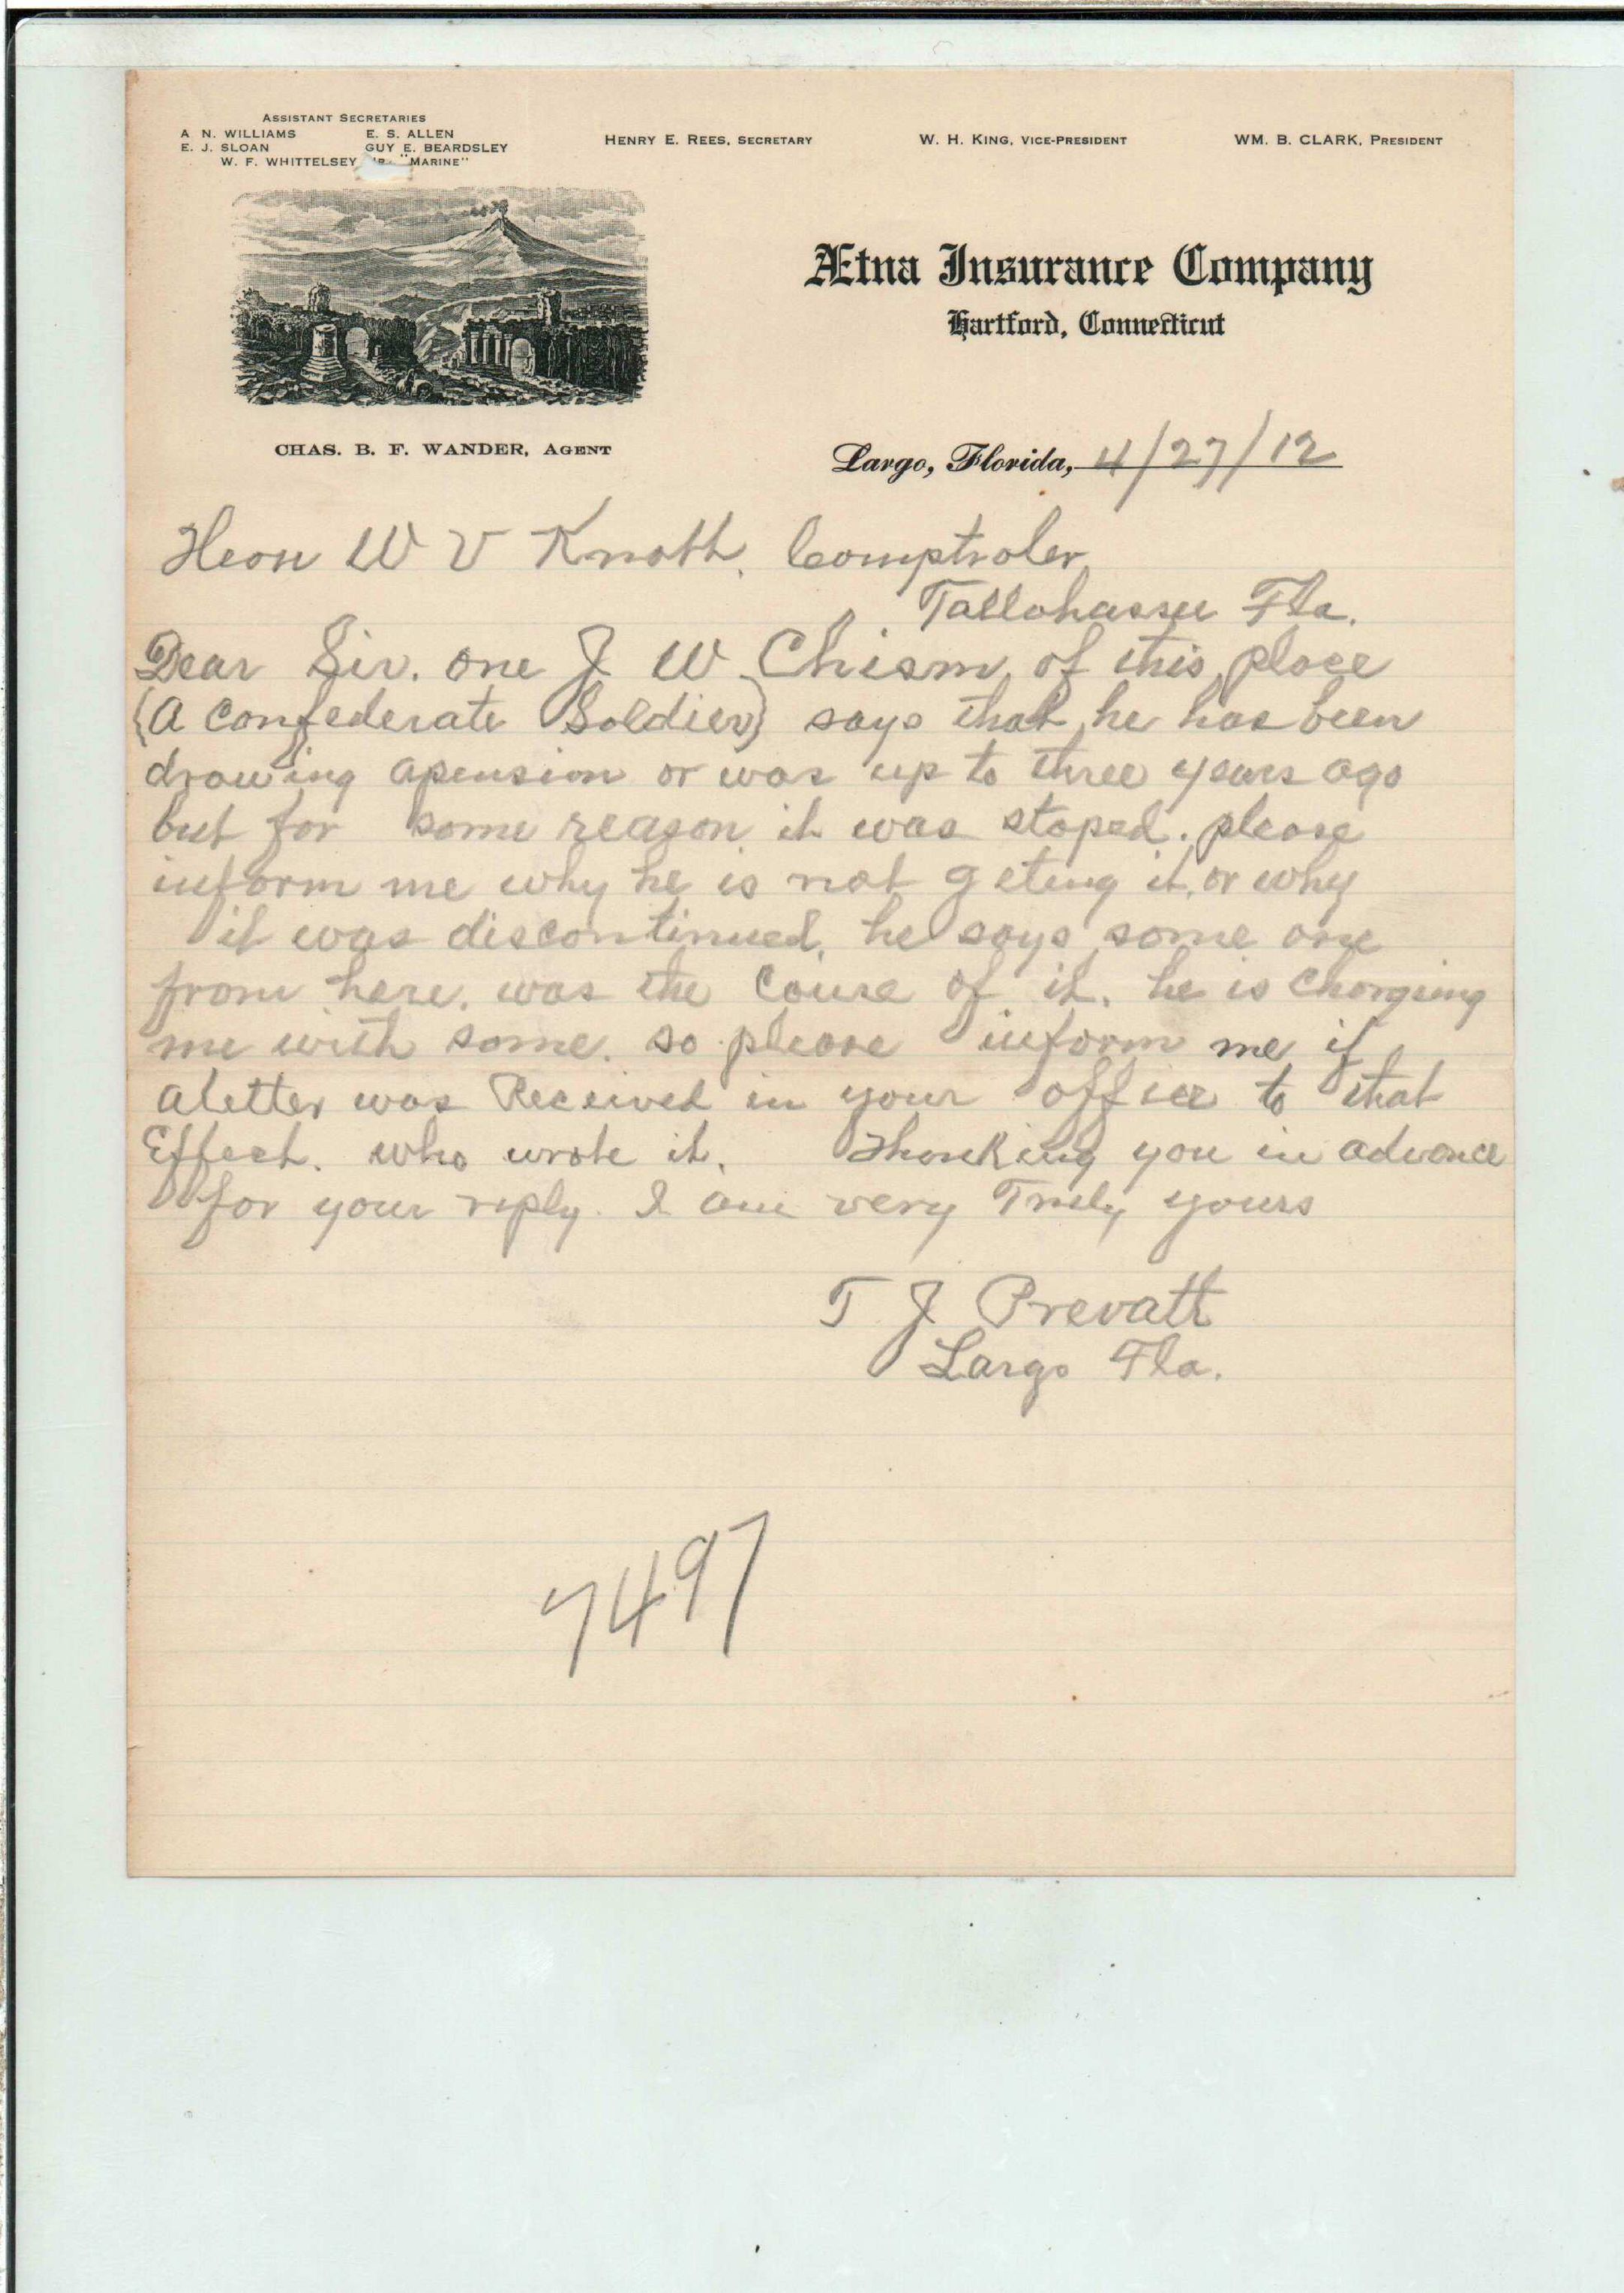 ASSISTANT SECRETARIES
A N. WILLIAMS E. S. ALLEN
E. J. SLOAN GUY E. BEARDSLEY
W. F. WHITTELSEY "MARINE"
HENRY E. REES, SECRETARY
W. H. KING, VICE-PRESIDENT
WM. B. CLARK, PRESIDENT
Ætna Insurance Company
Hartford, Connecticut
CHAS. B. F. WANDER, AGENT
Largo, Florida, 4/27/12
Heon W V Knott, Comptroler
Tallohassee Fla.
Dear Sir. one J W Chism, of this place
(A Confederate Soldier) says that he has been
drawing apension or was up to three years ago
but for some reason it was stoped. please
inform me why he is not geting it, or why
it was discontinued, he says some one
from here, was the Couse of it. he is Charging
me with some. so please inform me if
aletter was Received in your office to that
Effect. who wrote it. Thanking you in advance
for your reply. I am very Truly yours
T J Prevatt
Largo Fla.
7497